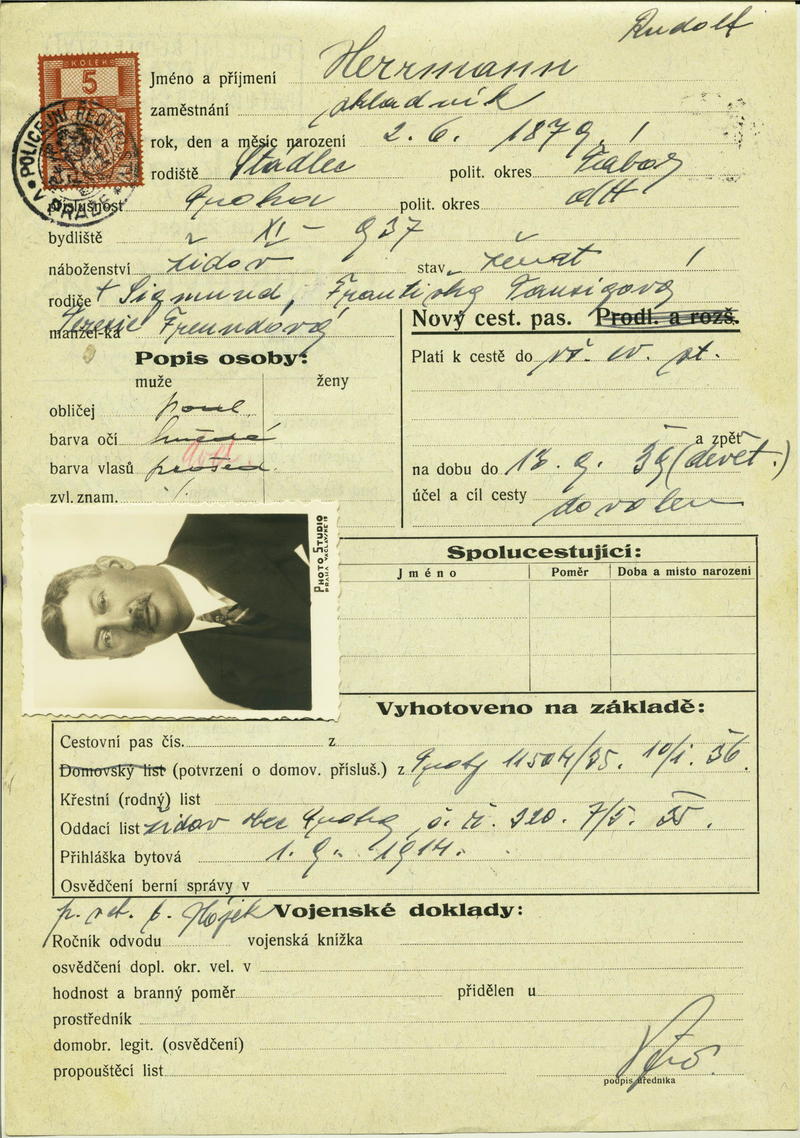 Rudolf
KOLEK
5
POLICEJNÍ ŘED
V PRAZE
Jméno a příjmení Herrmann
zaměstnání skladník
rok, den a měsíc narození 2. 6. 1879
rodiště Stadlec polit. okres Tabor
příslušnost Praha polit. okres dtt
bydliště XI - 937
náboženství židov stav ženat
rodiče † Sigmund, Františka Tausigová
manžel-ka Terezie Freundová
Nový cest. pas. Prodl. a rozš.
Popis osoby:
muže ženy
obličej
barva očí hnědé
barva vlasů prošed.
zvl. znam.
Platí k cestě do vš. ev. st.
a zpět
na dobu do 13. 9. 39 (devět.)
účel a cíl cesty dovolen
PHOTO STUDIO
PRAHA VÁCLAVSKÉ
Spolucestující:
Jméno Poměr Doba a místo narození
Vyhotoveno na základě:
Cestovní pas čís. z
Domovský list (potvrzení o domov. přísluš.) z Prahy 11504/35. 10/1. 36.
Křestní (rodný) list
Oddací list židov obec Praha, č. ř. 320. 7/5. 35.
Přihláška bytová 1. 9. 1914.
Osvědčení berní správy v
Hájek
Vojenské doklady:
Ročník odvodu vojenská knížka
osvědčení dopl. okr. vel. v
hodnost a branný poměr přidělen u
prostředník
domobr. legit. (osvědčení)
propouštěcí list
podpis úředníka